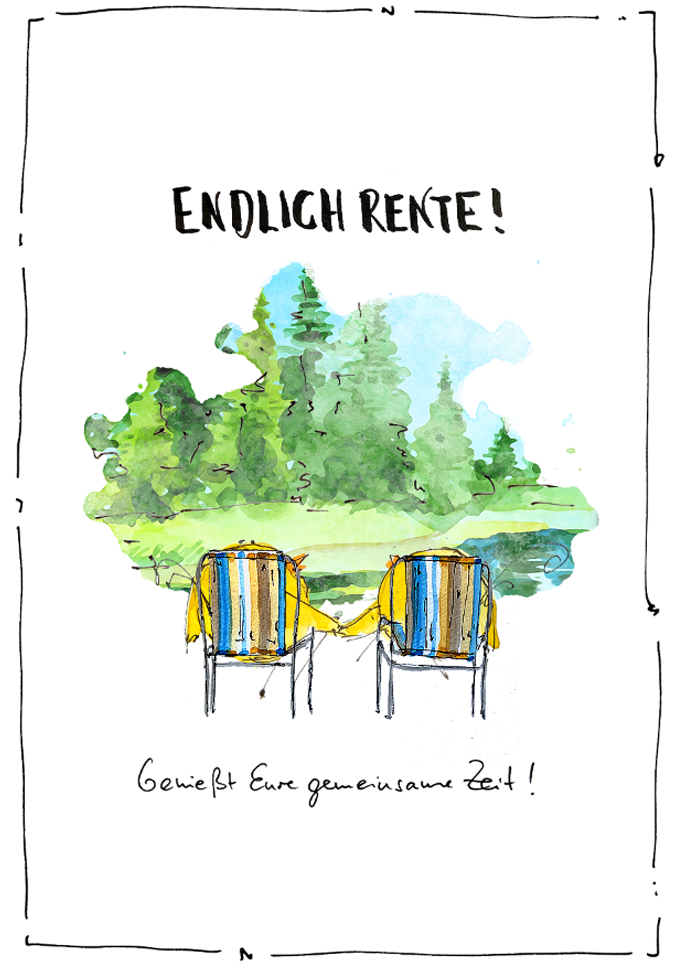 ENDLICH RENTE!
Genießt Eure gemeinsame Zeit!